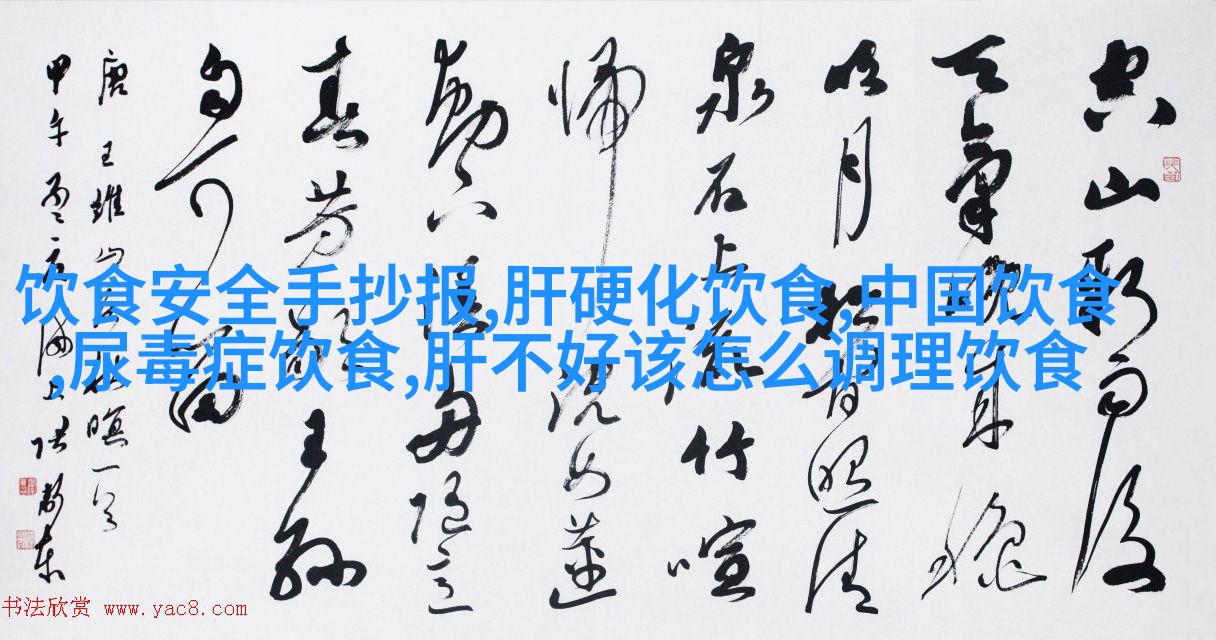 空山新雨後
天氣晚来秋
明月松間照清
泉石上流竹喧
歸浣女蓮
動下漁舟隨意
春芳歇王孫
自可留
唐王維山居秋暝一首
甲午海上張東
饮食安全手抄报,肝硬化饮食,中国饮食
,尿毒症饮食,肝不好该怎么调理饮食
书法欣赏 www.yac8.com